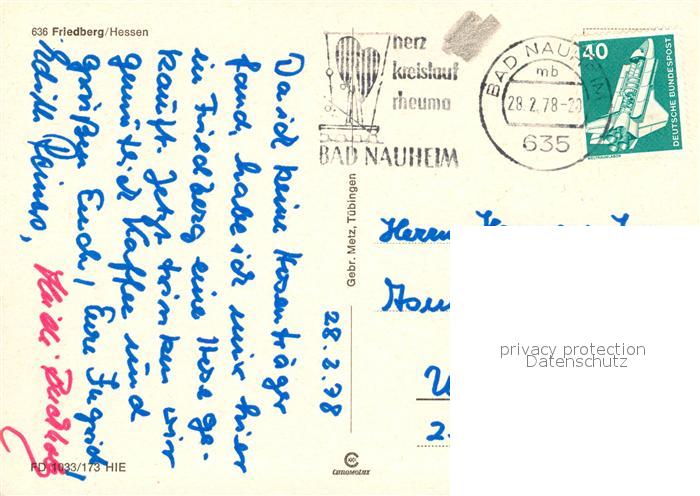 636 Friedberg/Hessen
herz
kreislauf
rheuma
BAD NAUHEIM
BAD NAUHEIM
mb
28.2.78-20
635
40
DEUTSCHE BUNDESPOST
WELTRAUMLABOR
Da ich keine Hosenträger
fand, habe ich mir hier
in Friedberg eine Hose ge-
kauft. Jetzt trinken wir
gemütlich Kaffee und
grüßen Euch, Eure Ingrid
Edith
Heidi
28.2.78
Gebr. Metz, Tübingen
Herrn
2.
privacy protection
Datenschutz
FD 1033/173 HIE
CHROMOLUX